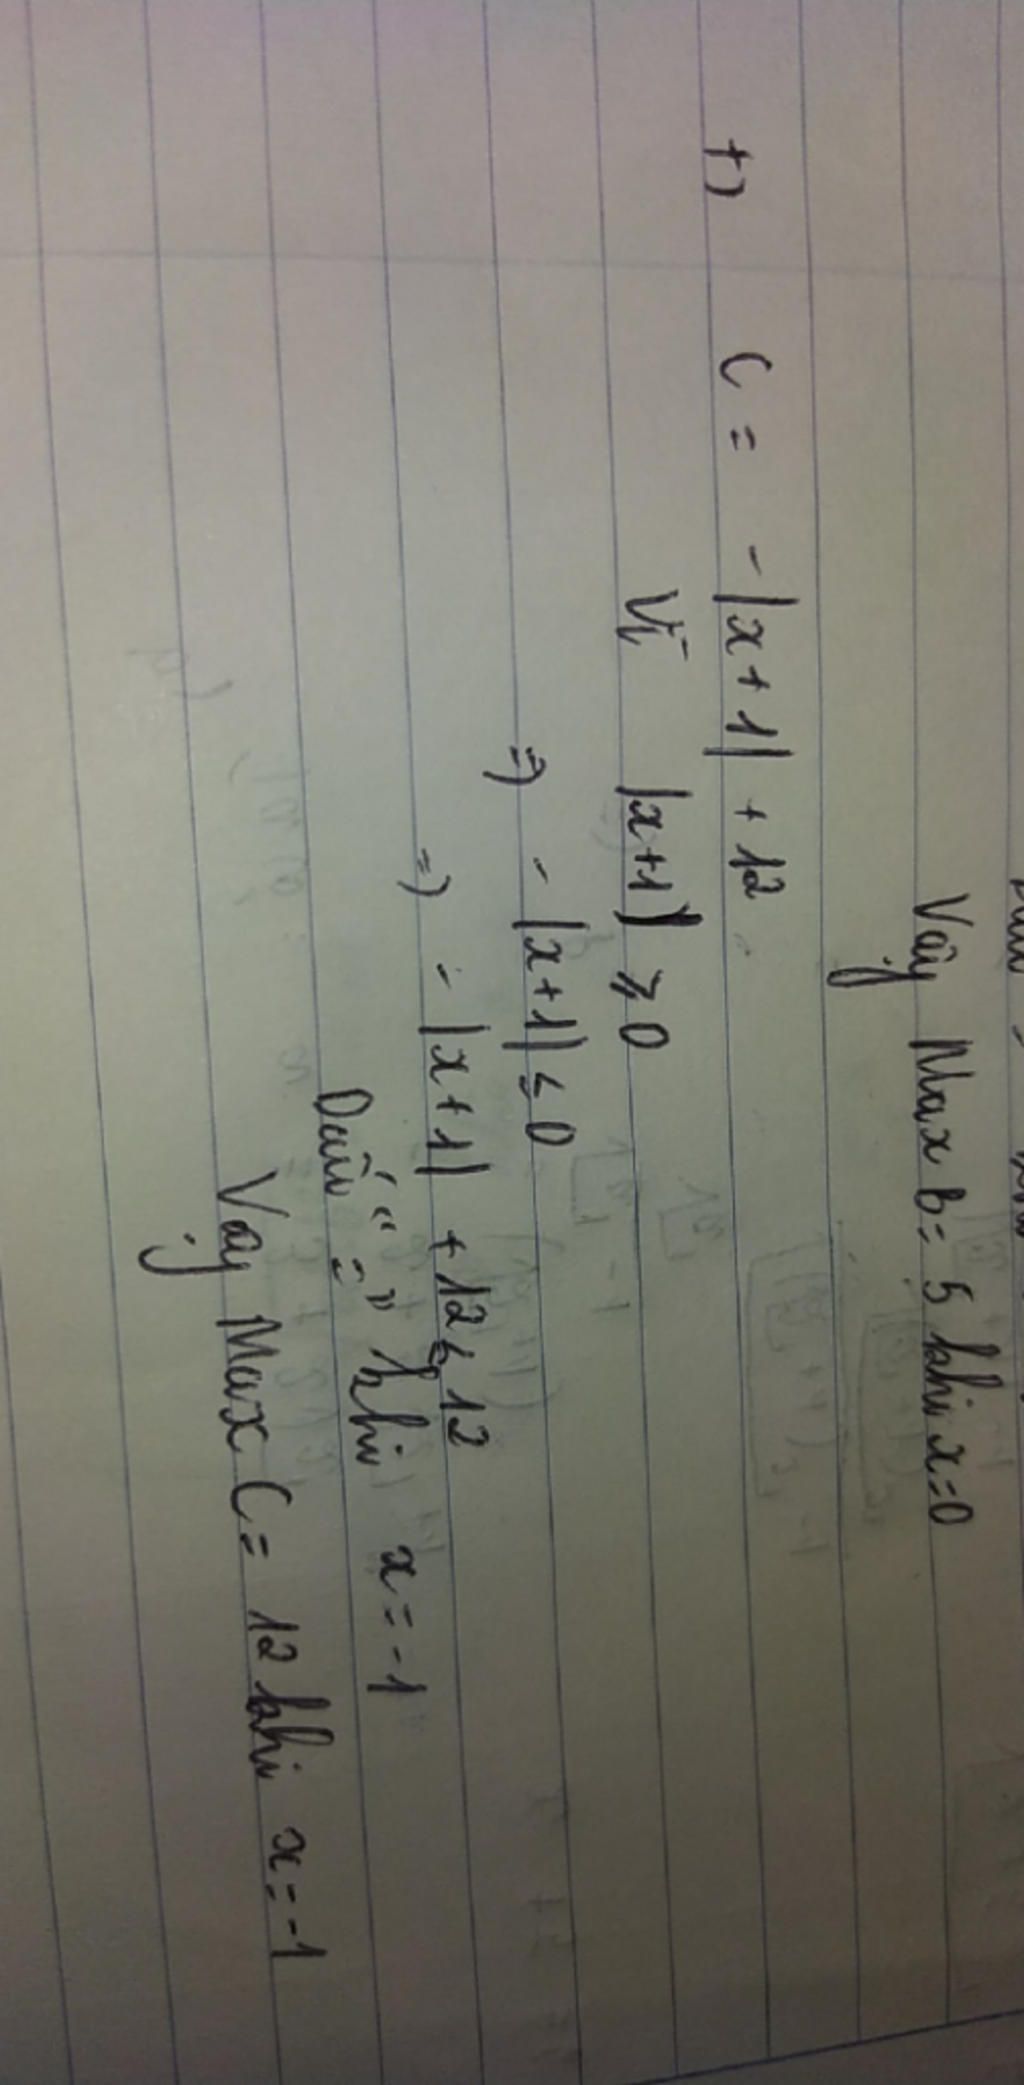 Vậy Max B = 5 khi x=0
+) C = -|x+1| + 12
Vì |x+1| ⩾ 0
=) - |x+1| ⩽ 0
=) - |x+1| + 12 ⩽ 12
Dấu "=" khi x = -1
Vậy Max C = 12 khi x = -1